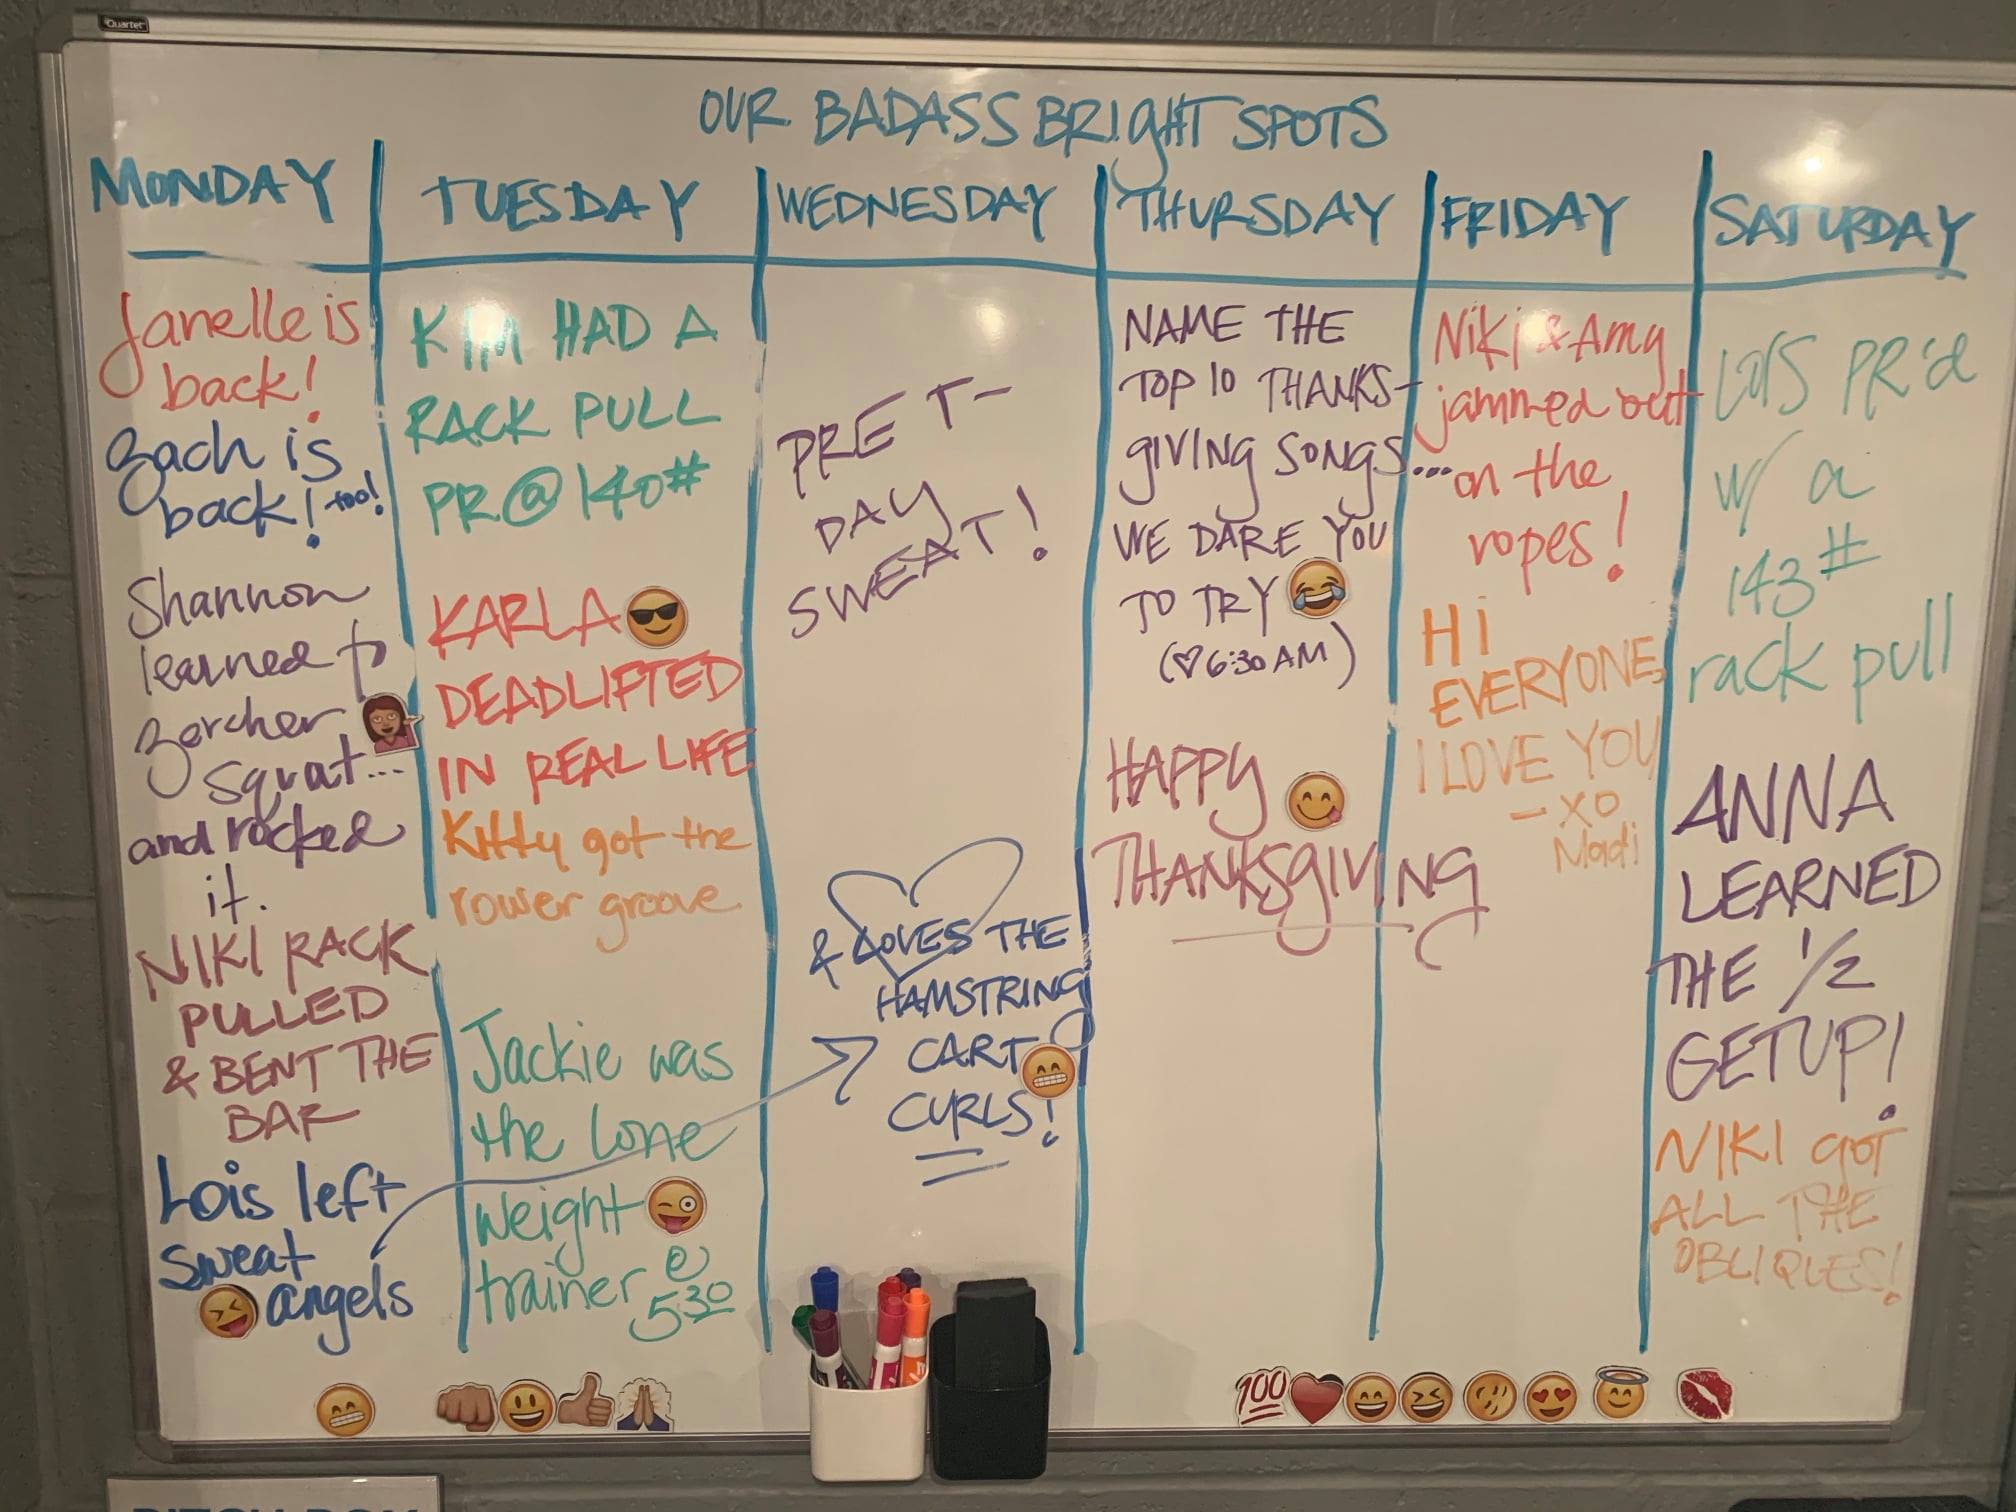 Quartet
OUR BADASS BRIGHT SPOTS
MONDAY
Janelle is
back!
Zach is
back! too!
Shannon
learned to
zercher
squat...
and rocked
it.
NIKI RACK
PULLED
& BENT THE
BAR
Lois left
sweat
angels
TUESDAY
KIM HAD A
RACK PULL
PR @ 140#
KARLA
DEADLIFTED
IN REAL LIFE
Kitty got the
rower groove
Jackie was
the lone
weight
trainer @
530
WEDNESDAY
PRE T-
DAY
SWEAT!
& LOVES THE
HAMSTRING
CART
CURLS!
THURSDAY
NAME THE
TOP 10 THANKS-
GIVING SONGS...
WE DARE YOU
TO TRY
(♡ 6:30 AM)
HAPPY
THANKSGIVING
FRIDAY
Niki & Amy
jammed out
on the
ropes!
HI
EVERYONE,
I LOVE YOU
- XO
Madi
SATURDAY
LOIS PR'd
w/ a
143#
rack pull
ANNA
LEARNED
THE 1/2
GETUP!
NIKI GOT
ALL THE
OBLIQUES!
100